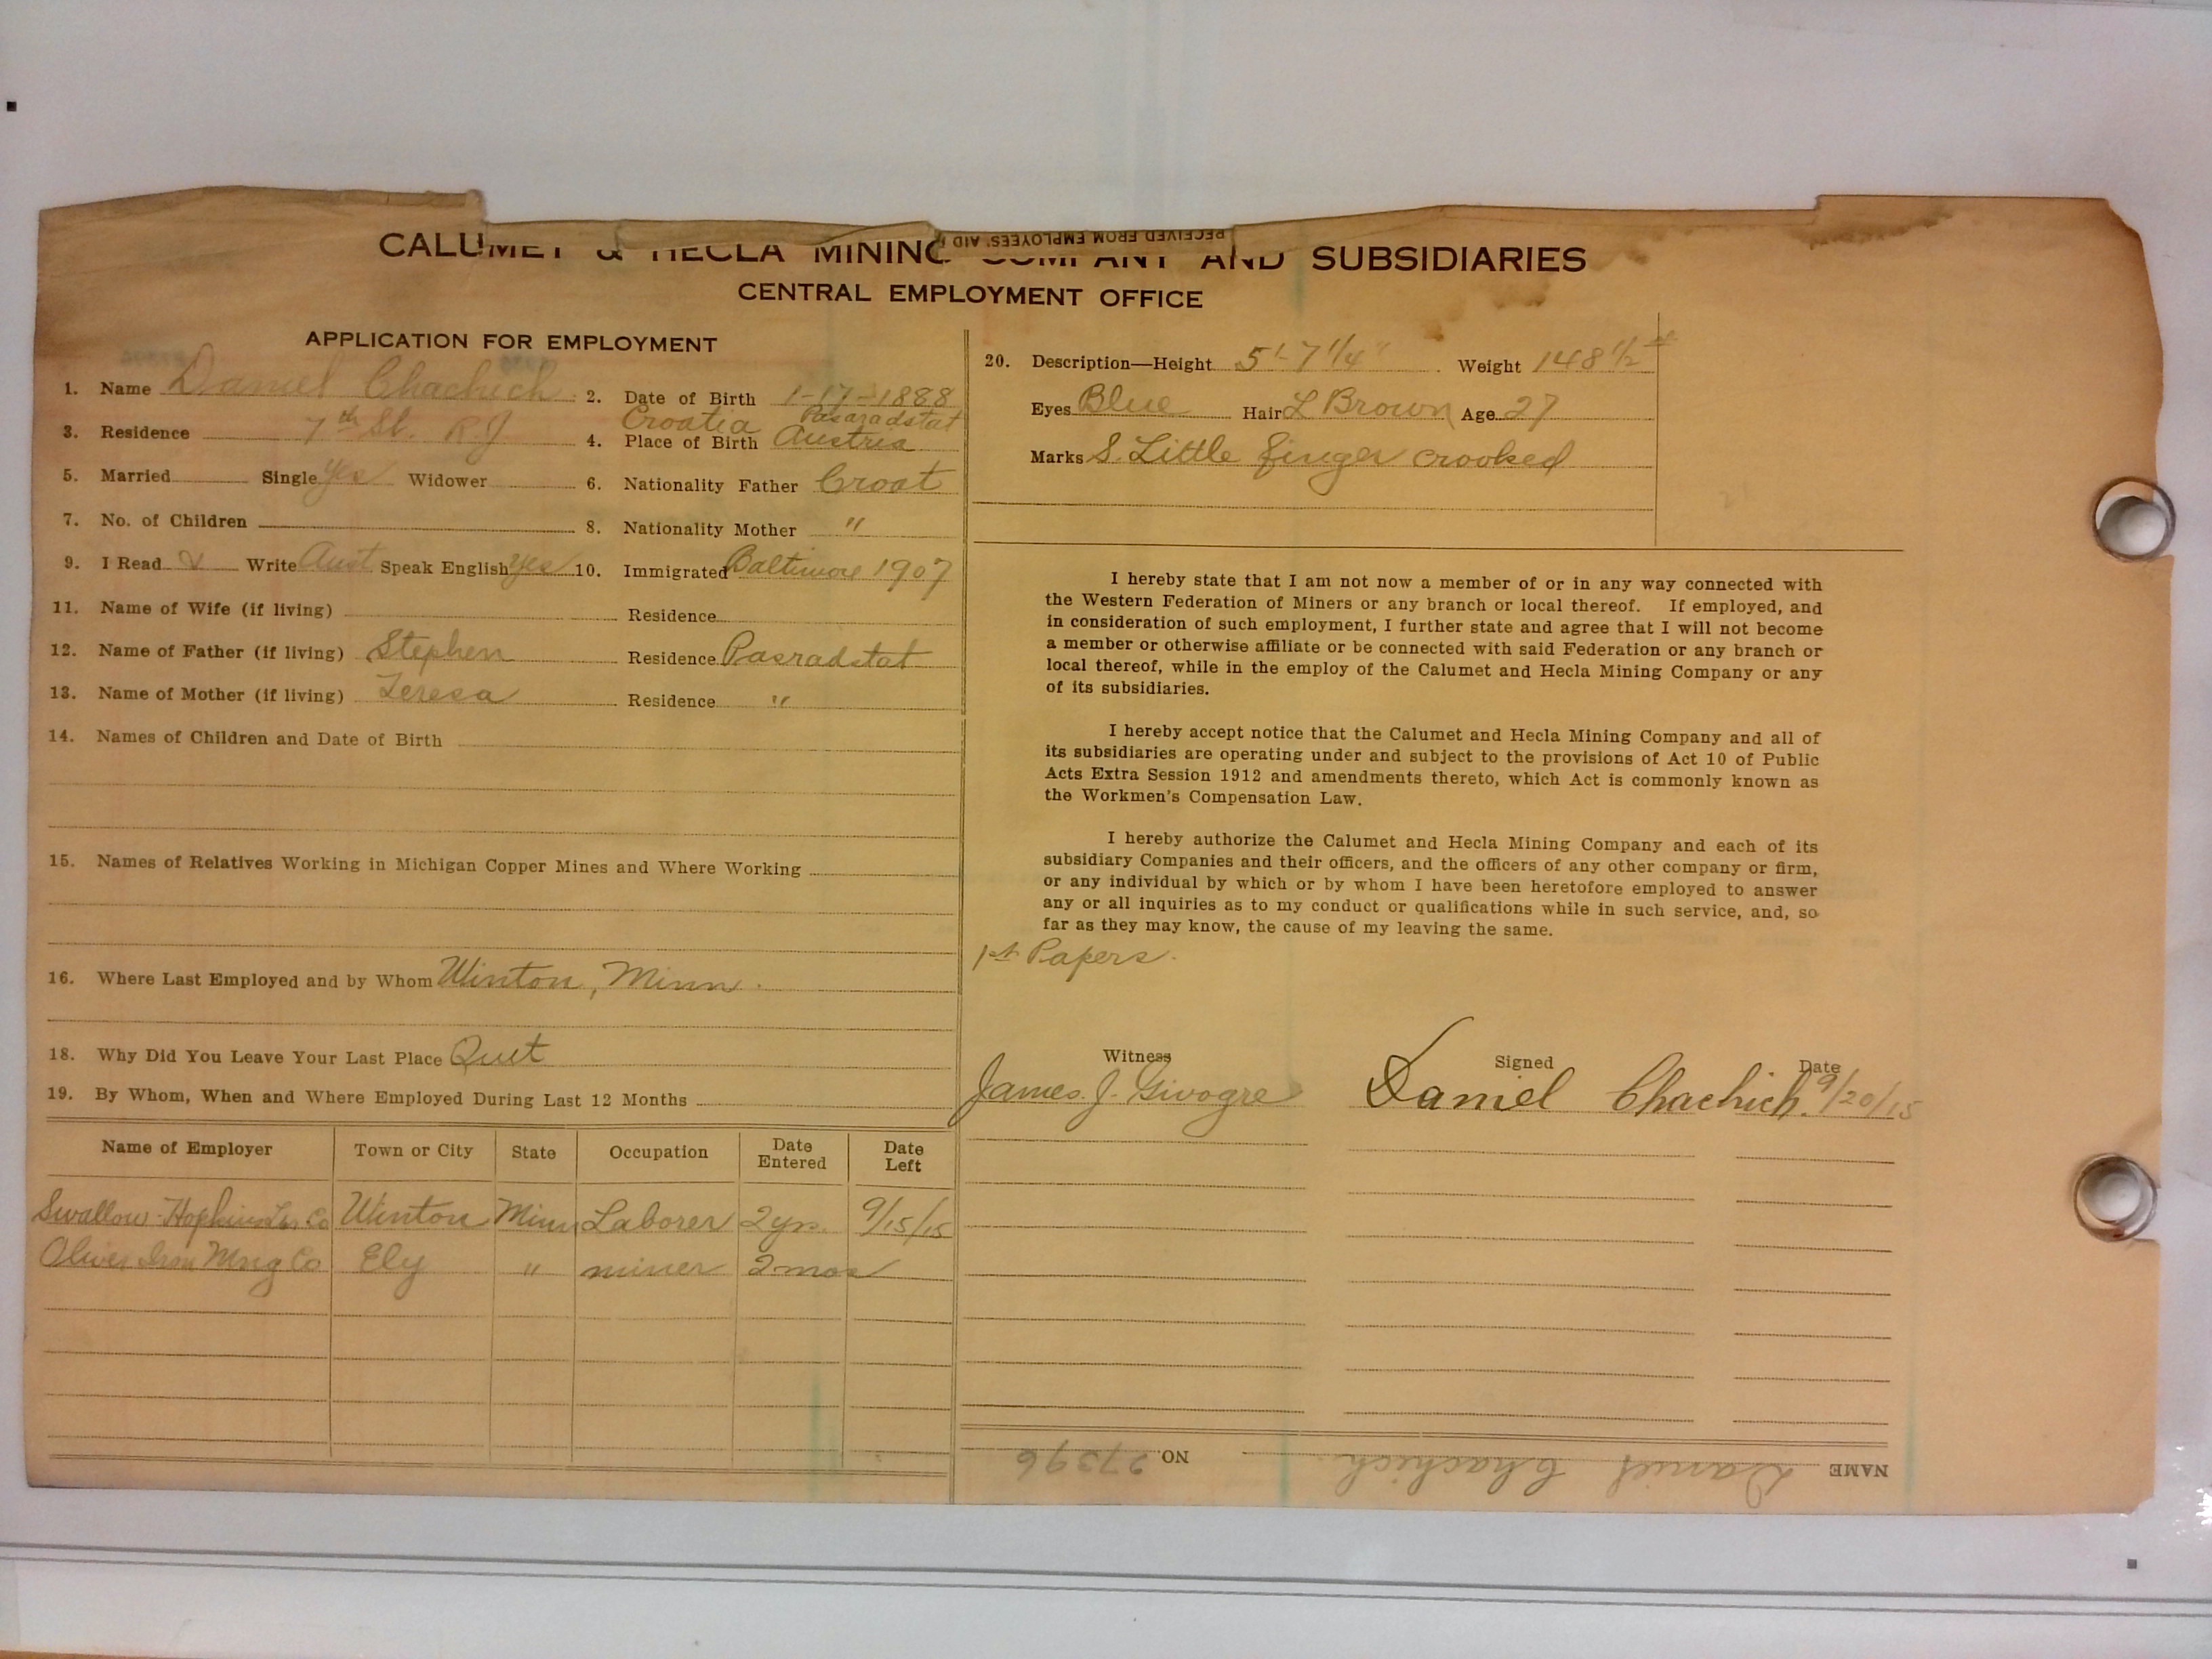 RECEIVED FROM EMPLOYEES' AID
CALUMET & HECLA MINING COMPANY AND SUBSIDIARIES
CENTRAL EMPLOYMENT OFFICE
APPLICATION FOR EMPLOYMENT
1. Name Daniel Chachich 2. Date of Birth 1-17-1888
Croatia Pasaradstat
3. Residence 7th St. R.J 4. Place of Birth Austria
5. Married Single Yes Widower 6. Nationality Father Croat
7. No. of Children 8. Nationality Mother "
9. I Read & Write Aust Speak English Yes 10. Immigrated Baltimore 1907
11. Name of Wife (if living) Residence
12. Name of Father (if living) Stephen Residence Pasradstat
13. Name of Mother (if living) Teresa Residence "
14. Names of Children and Date of Birth
15. Names of Relatives Working in Michigan Copper Mines and Where Working
16. Where Last Employed and by Whom Winton, Minn.
18. Why Did You Leave Your Last Place Quit
19. By Whom, When and Where Employed During Last 12 Months
Name of Employer Town or City State Occupation Date Entered Date Left
Swallow-Hopkins Lbr Co Winton Minn Laborer 2yrs. 9/15/15
Oliver Iron Mng Co Ely " miner 2mos
20. Description—Height 5'-7 1/4" Weight 148 1/2 #
Eyes Blue Hair L Brown Age 27
Marks S. Little finger crooked
I hereby state that I am not now a member of or in any way connected with
the Western Federation of Miners or any branch or local thereof. If employed, and
in consideration of such employment, I further state and agree that I will not become
a member or otherwise affiliate or be connected with said Federation or any branch or
local thereof, while in the employ of the Calumet and Hecla Mining Company or any
of its subsidiaries.
I hereby accept notice that the Calumet and Hecla Mining Company and all of
its subsidiaries are operating under and subject to the provisions of Act 10 of Public
Acts Extra Session 1912 and amendments thereto, which Act is commonly known as
the Workmen's Compensation Law.
I hereby authorize the Calumet and Hecla Mining Company and each of its
subsidiary Companies and their officers, and the officers of any other company or firm,
or any individual by which or by whom I have been heretofore employed to answer
any or all inquiries as to my conduct or qualifications while in such service, and, so
far as they may know, the cause of my leaving the same.
1st Papers.
Witness Signed Date
James J. Givogre Daniel Chachich. 9/20/15
NAME Daniel Chachich NO. 27396